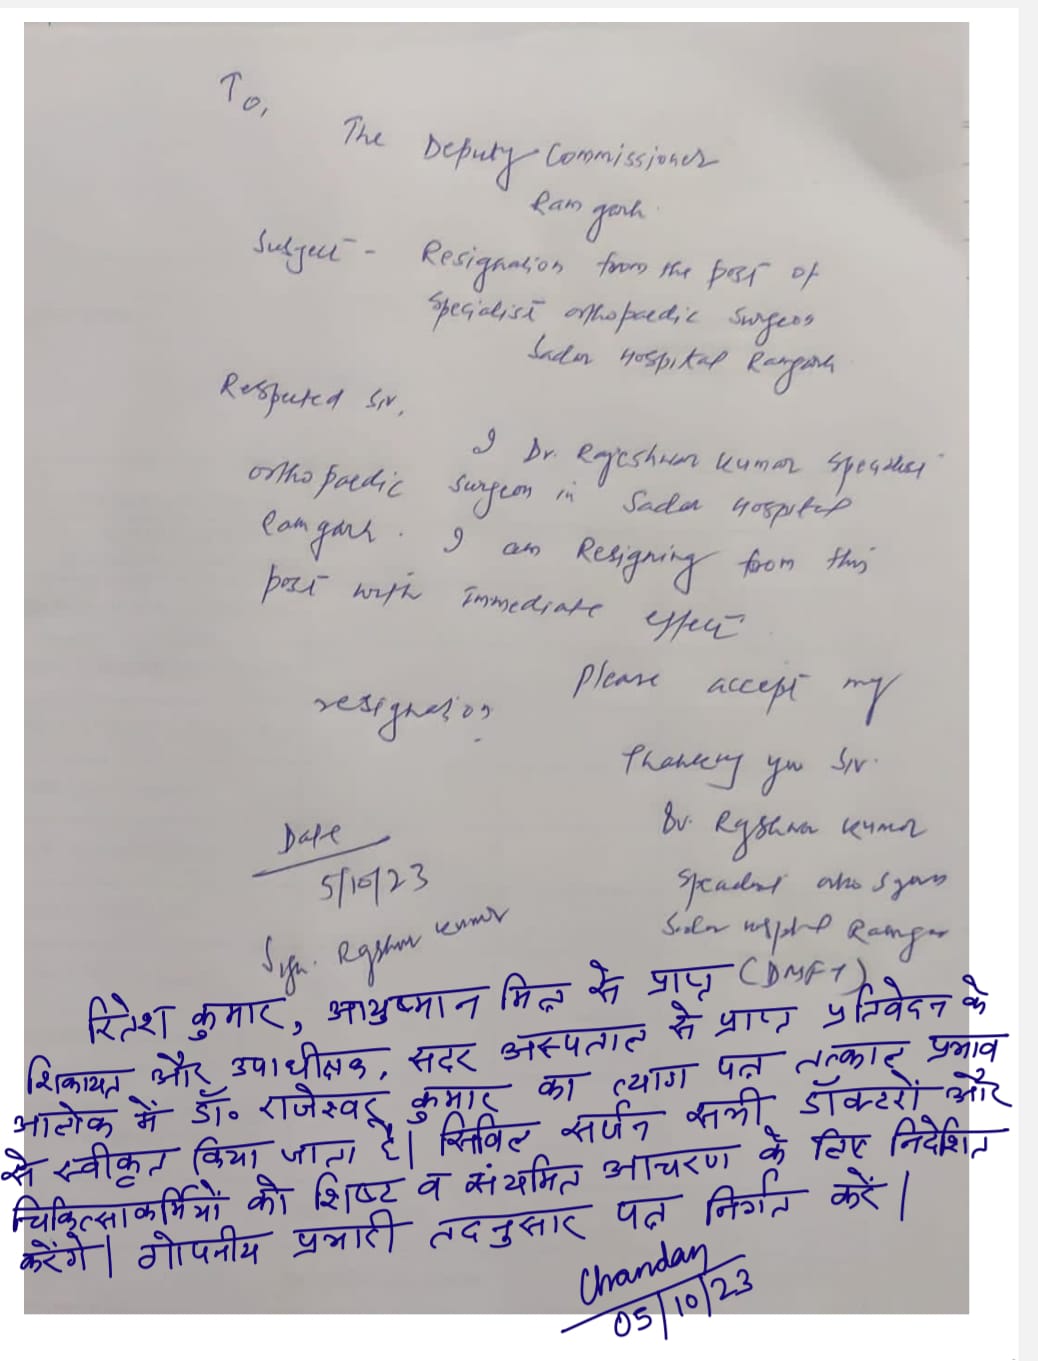 To,
The Deputy Commissioner
Ramgarh.
Subject - Resignation from the post of
Specialist orthopaedic Surgeon
Sadar Hospital Ramgarh
Respected Sir,
I Dr. Rajeshwar Kumar Specialist
orthopaedic surgeon in Sadar Hospital
Ramgarh. I am Resigning from this
post with immediate effect.
Please accept my
resignation.
Thanking you Sir.
Dr. Rajeshwar Kumar
Date
5/10/23
Sadar Hospital
Sign. Kumar
(DMFT)
रितेश कुमार, आयुष्मान मित्र से प्राप्त
शिकायत और उपाधीक्षक, सदर अस्पताल से प्राप्त प्रतिवेदन के
आलोक में डॉ० राजेश्वर कुमार का त्याग पत्र तत्काल प्रभाव
से स्वीकृत किया जाता है। सिविल सर्जन सभी डॉक्टरों और
चिकित्साकर्मियों को शिष्ट व संयमित आचरण के लिए निदेशित
करेंगे। गोपनीय प्रभारी तदनुसार पत्र निर्गत करें।
Chandan
05/10/23